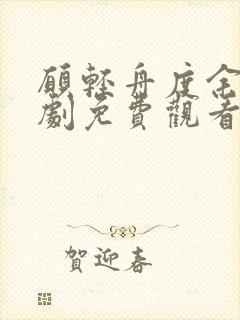 願輕舟度全
劇免費觀看
賀迎春